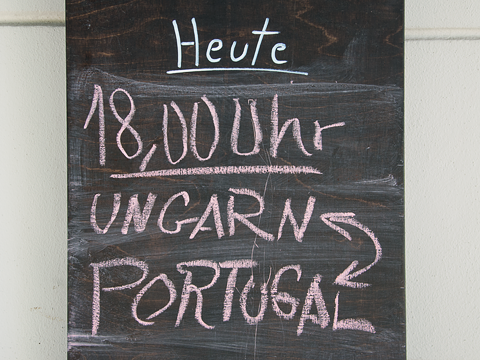 Heute
18,00 Uhr
UNGARN
PORTUGAL